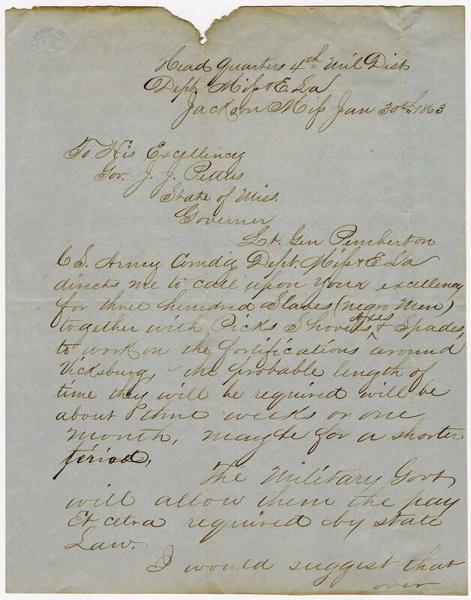 Head Quarters 4th Mil Dist
Dept Miss & E. La
Jackson Miss Jan 30th 1863
To His Excellency
Gov. J. J. Pettus
State of Miss.
Governer
Lt. Gen Pemberton
C S. Army Comdg Dept. Miss & E La
directs me to call upon your excellency
for three hundred Slaves (negro Men)
together with Picks Shovels Axes & Spades,
to work on the fortifications around
Vicksburg, the probable length of
time they will be required will be
about three weeks or one
month, maybe for a shorter
period,
The Military Govt
will allow them the pay
Et cetra required by state
Law.
I would suggest that
over